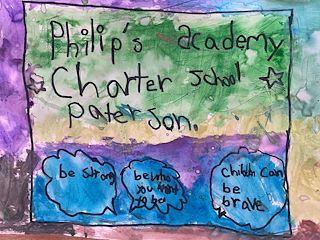 Philip's academy
Charter school
paterson.
be strong
be who
you want
to be
childen can
be
brave